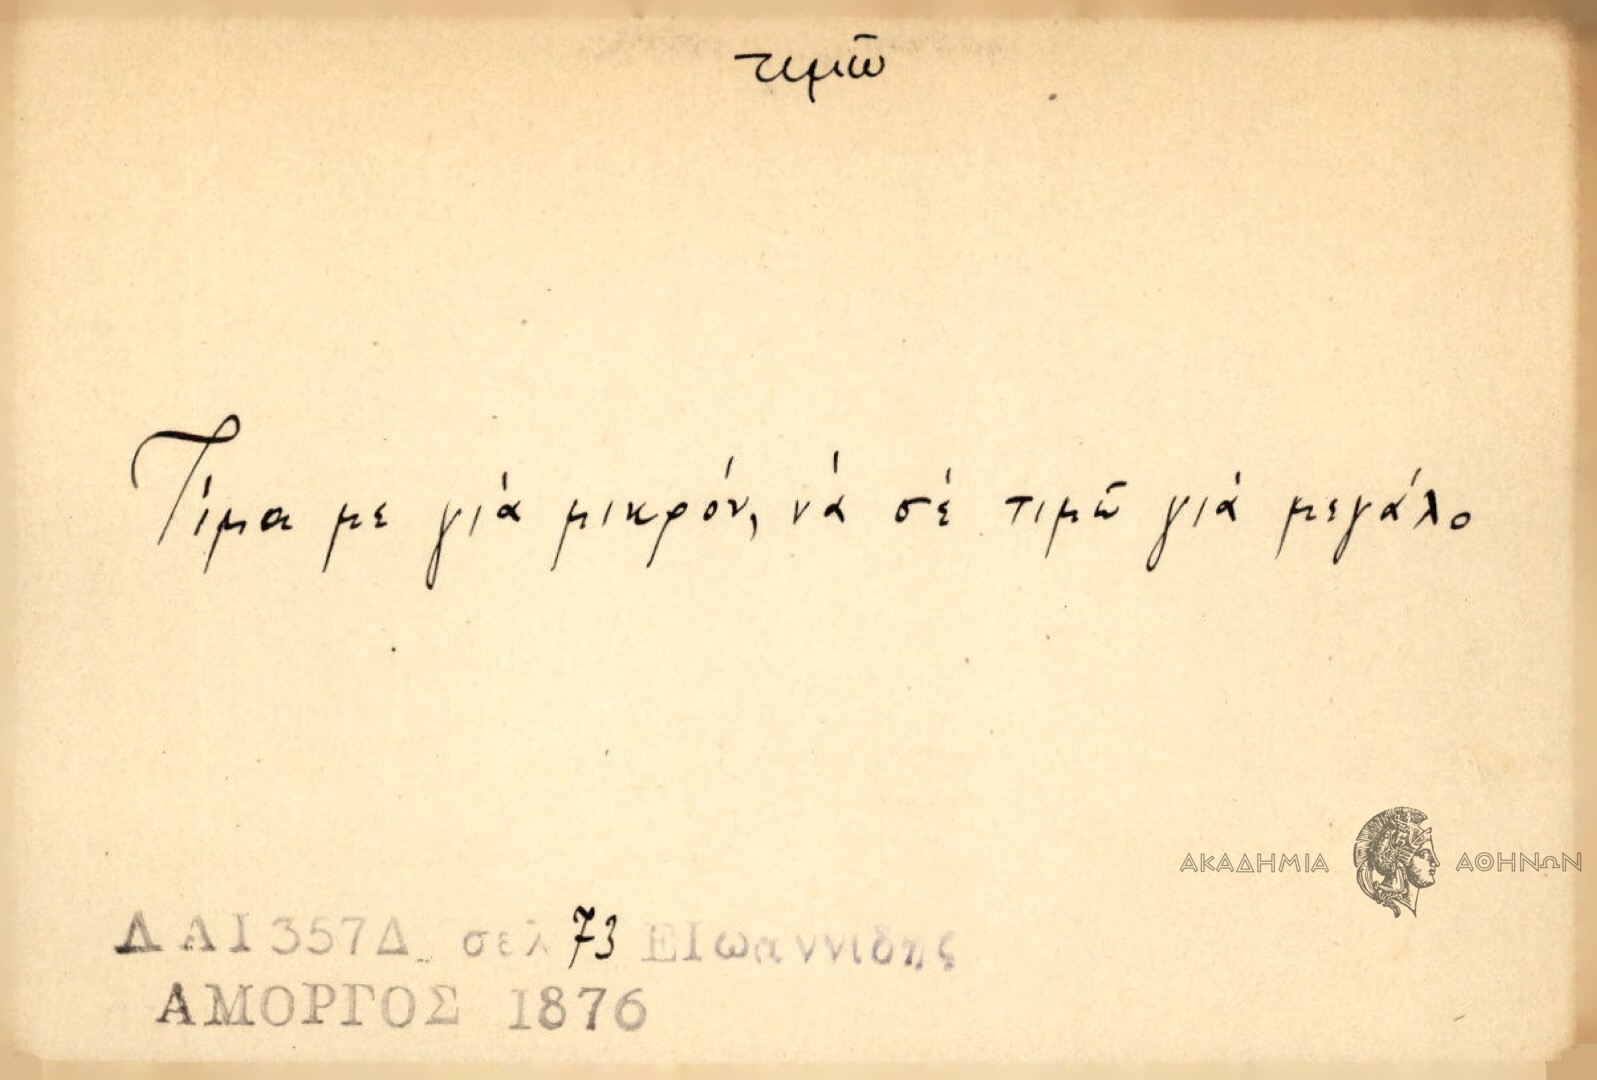 τιμῶ
Τίμα με γιά μικρόν, νά σέ τιμῶ γιά μεγάλο
ΑΚΑΔΗΜΙΑ ΑΘΗΝΩΝ
ΔΑΙ357Δ σελ 73 ΕΙωαννιδης
ΑΜΟΡΓΟΣ 1876